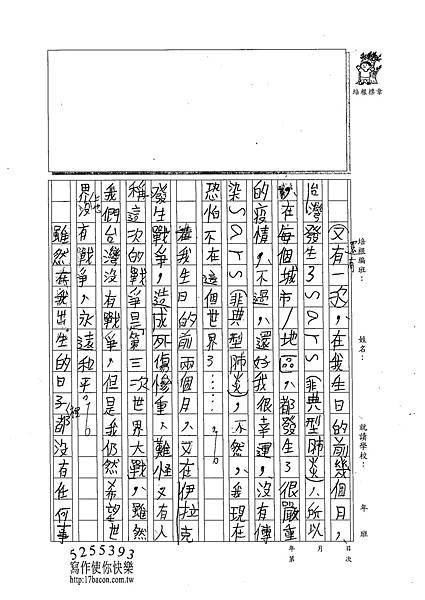 培根標章
培根編班：
姓名：
就讀學校：
年 班
又有一次，在我生日的前幾個月，
台灣發生了SARS（非典型肺炎），所以
在每個城市/地區，都發生了很嚴重
的疫情，不過，還好我很幸運，沒有傳
染SARS（非典型肺炎），不然，我現在
恐怕不在這個世界了……。
我生日的前兩個月，又在伊拉克
發生戰爭，造成死傷慘重，難怪又有人
稱這次的戰爭是「第三次世界大戰」，雖然
我們台灣沒有戰爭，但是我仍然希望世
界也沒有戰爭，永遠和平。
雖然在我出生的日子裡都沒有任何事
年 月 日
第 次
5255393
寫作使你快樂
http://17bacon.com.tw